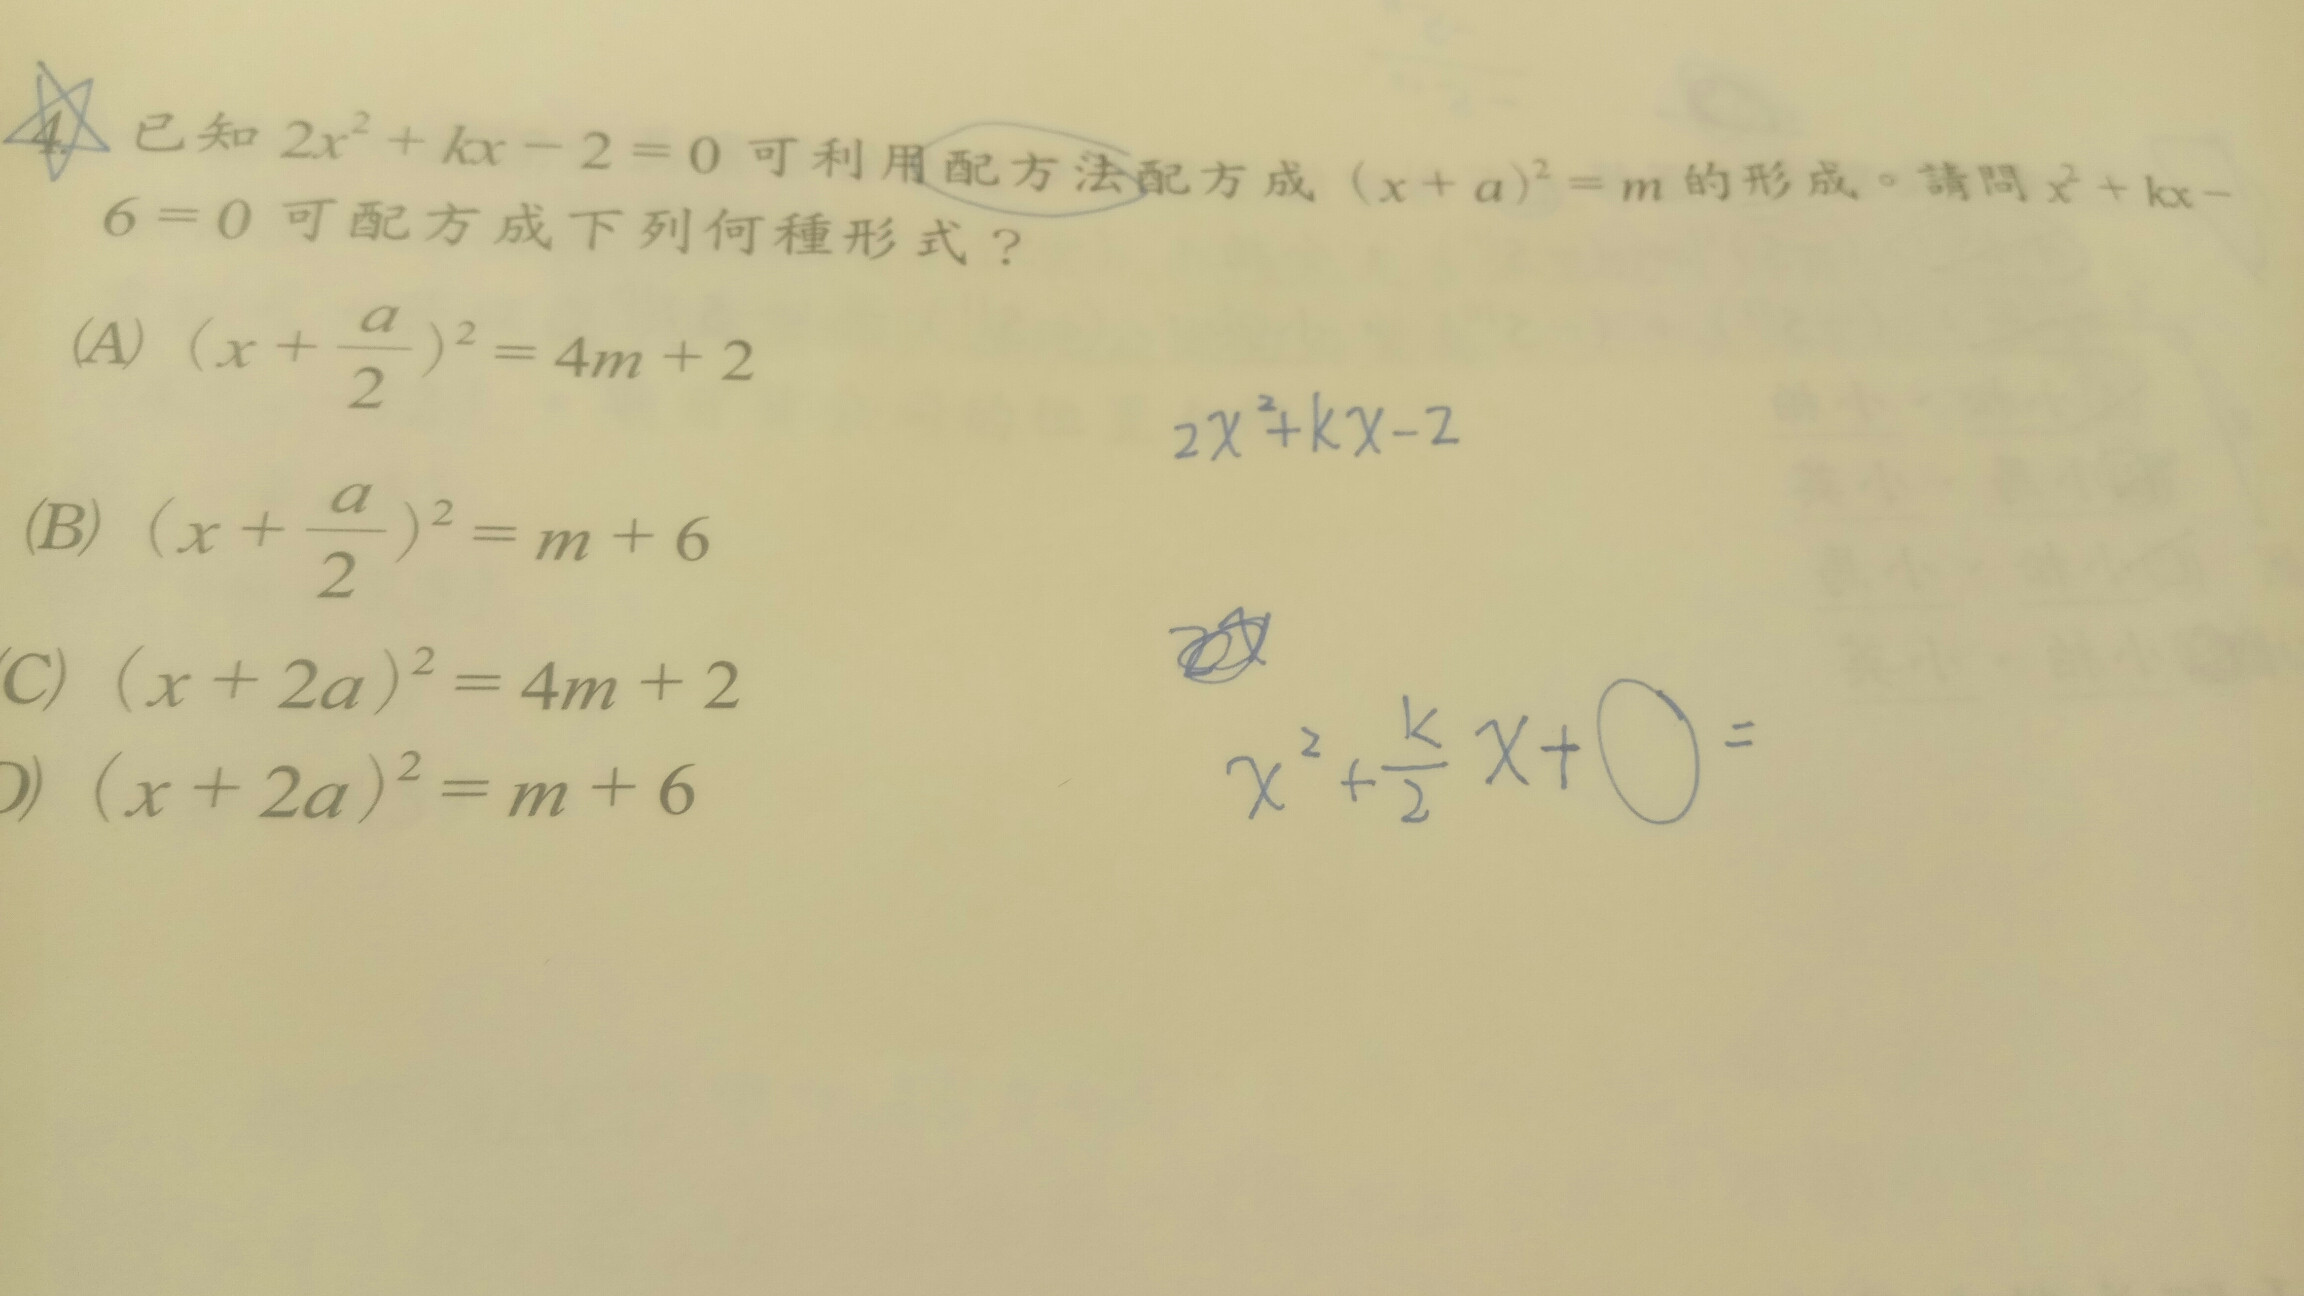 4. 已知 2x² + kx − 2 = 0 可利用配方法配方成（x + a）² = m 的形成。請問 x² + kx −
6 = 0 可配方成下列何種形式？
(A)（x + a/2）² = 4m + 2
2x²+kx-2
(B)（x + a/2）² = m + 6
(C)（x + 2a）² = 4m + 2
x² + k/2 x + =
D)（x + 2a）² = m + 6